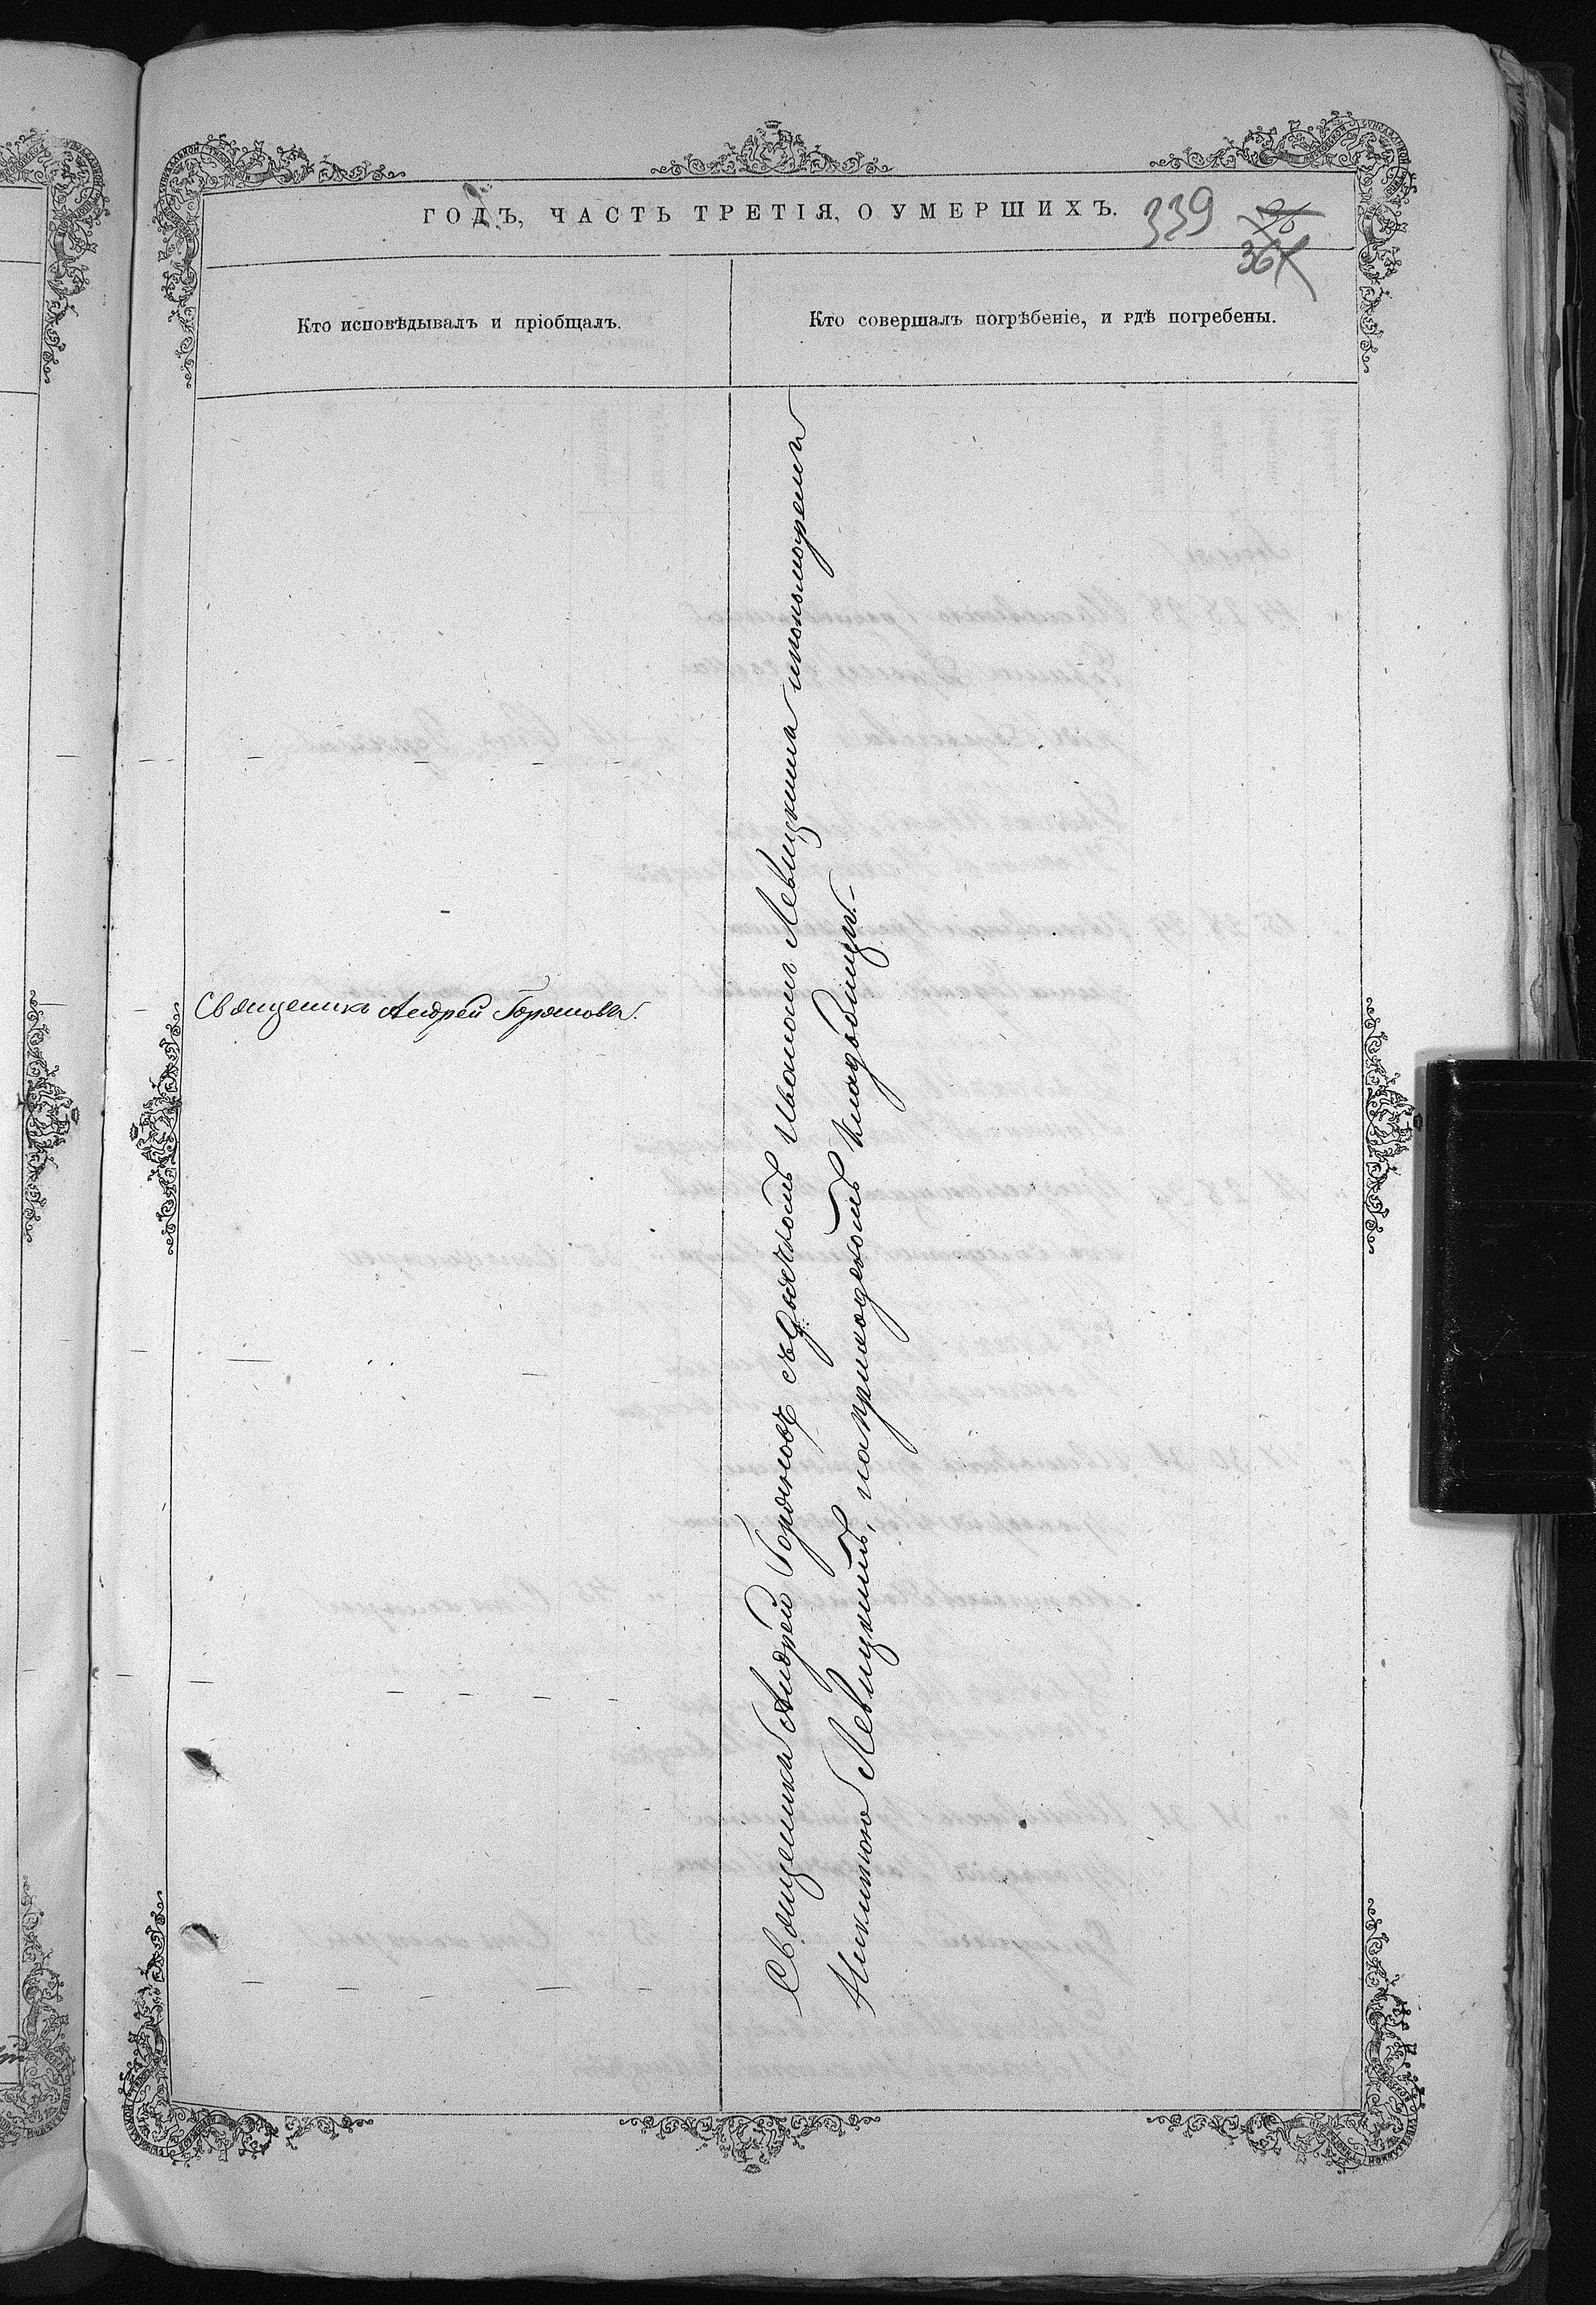 ГОДЪ, ЧАСТЬ ТРЕТІЯ, О УМЕРШИХЪ.
339
96
364
Кто исповѣдывалъ и пріобщалъ.
Кто совершалъ погрѣбеніе, и гдѣ погребены.
Священикъ Андрей Горяновъ.
Священикъ Андрей Горяновъ съ Дьячкомъ Иваномъ Левицкимъ и пономаремъ
Никитою Левицкимъ, на приходскомъ кладбищѣ.-